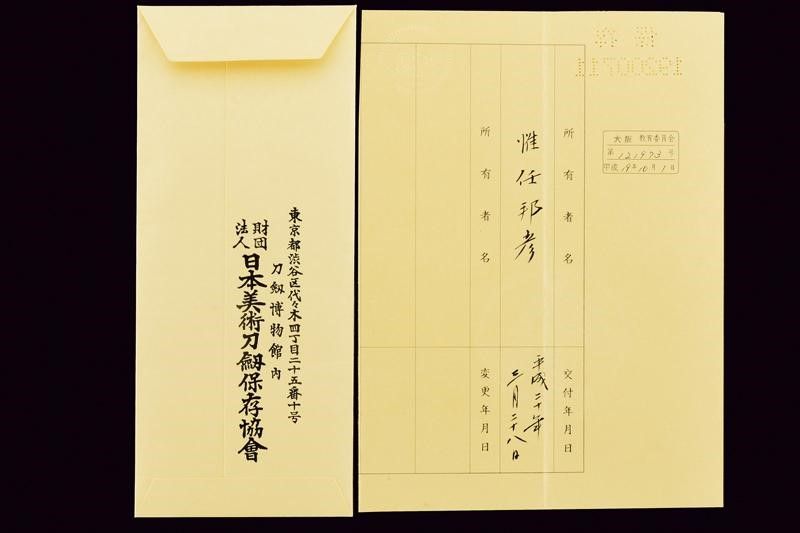 東京都渋谷区代々木四丁目二十五番十号
刀劔博物館内
財団
法人
日本美術刀劔保存協會
大阪 教育委員会
第 121973 号
平成 19年 10月 1日
所有者名
交付年月日
惟任邦彦
平成二十年
三月二十八日
所有者名
変更年月日